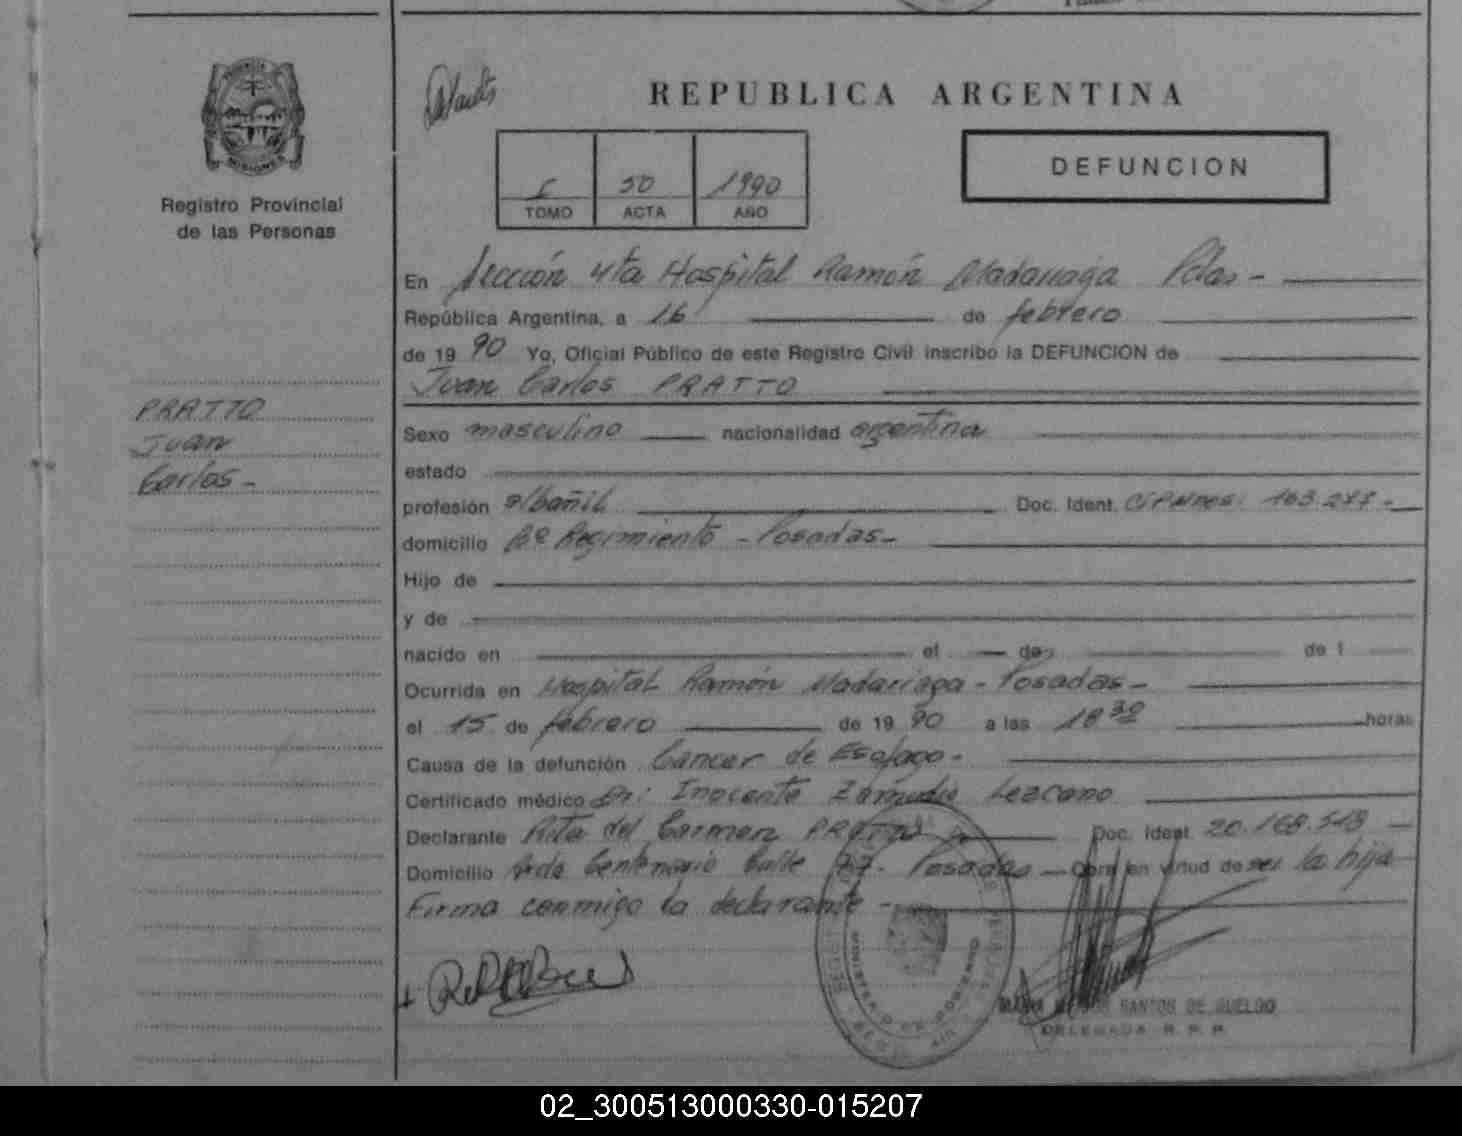 REPUBLICA ARGENTINA
I 50 1990
TOMO ACTA AÑO
DEFUNCION
MISIONES
Registro Provincial
de las Personas
PRATTO
Juan
Carlos -
En Sección 4ta Hospital Ramón Madariaga Pdas -
República Argentina, a 16 de febrero
de 19 90 Yo, Oficial Público de este Registro Civil inscribo la DEFUNCION de
Juan Carlos PRATTO
Sexo masculino nacionalidad argentina
estado
profesión albañil Doc. Ident. 163.277 -
domicilio Regimiento - Posadas -
Hijo de
y de
nacido en el de de 1
Ocurrida en Hospital Ramón Madariaga - Posadas -
el 15 de febrero de 19 90 a las 18 30 horas
Causa de la defunción Cancer de Esofago -
Certificado médico Dr: Inocente Zamudio Lezcano
Declarante Rita del Carmen PRATTO Doc. Ident. 20.168.518
Domicilio Avda Centenario Calle 77 - Posadas - Obra en virtud de ser la hija
Firma conmigo la declarante -
SANTOS DE GUELDO
DELEGADA R. P. P.
02_300513000330-015207